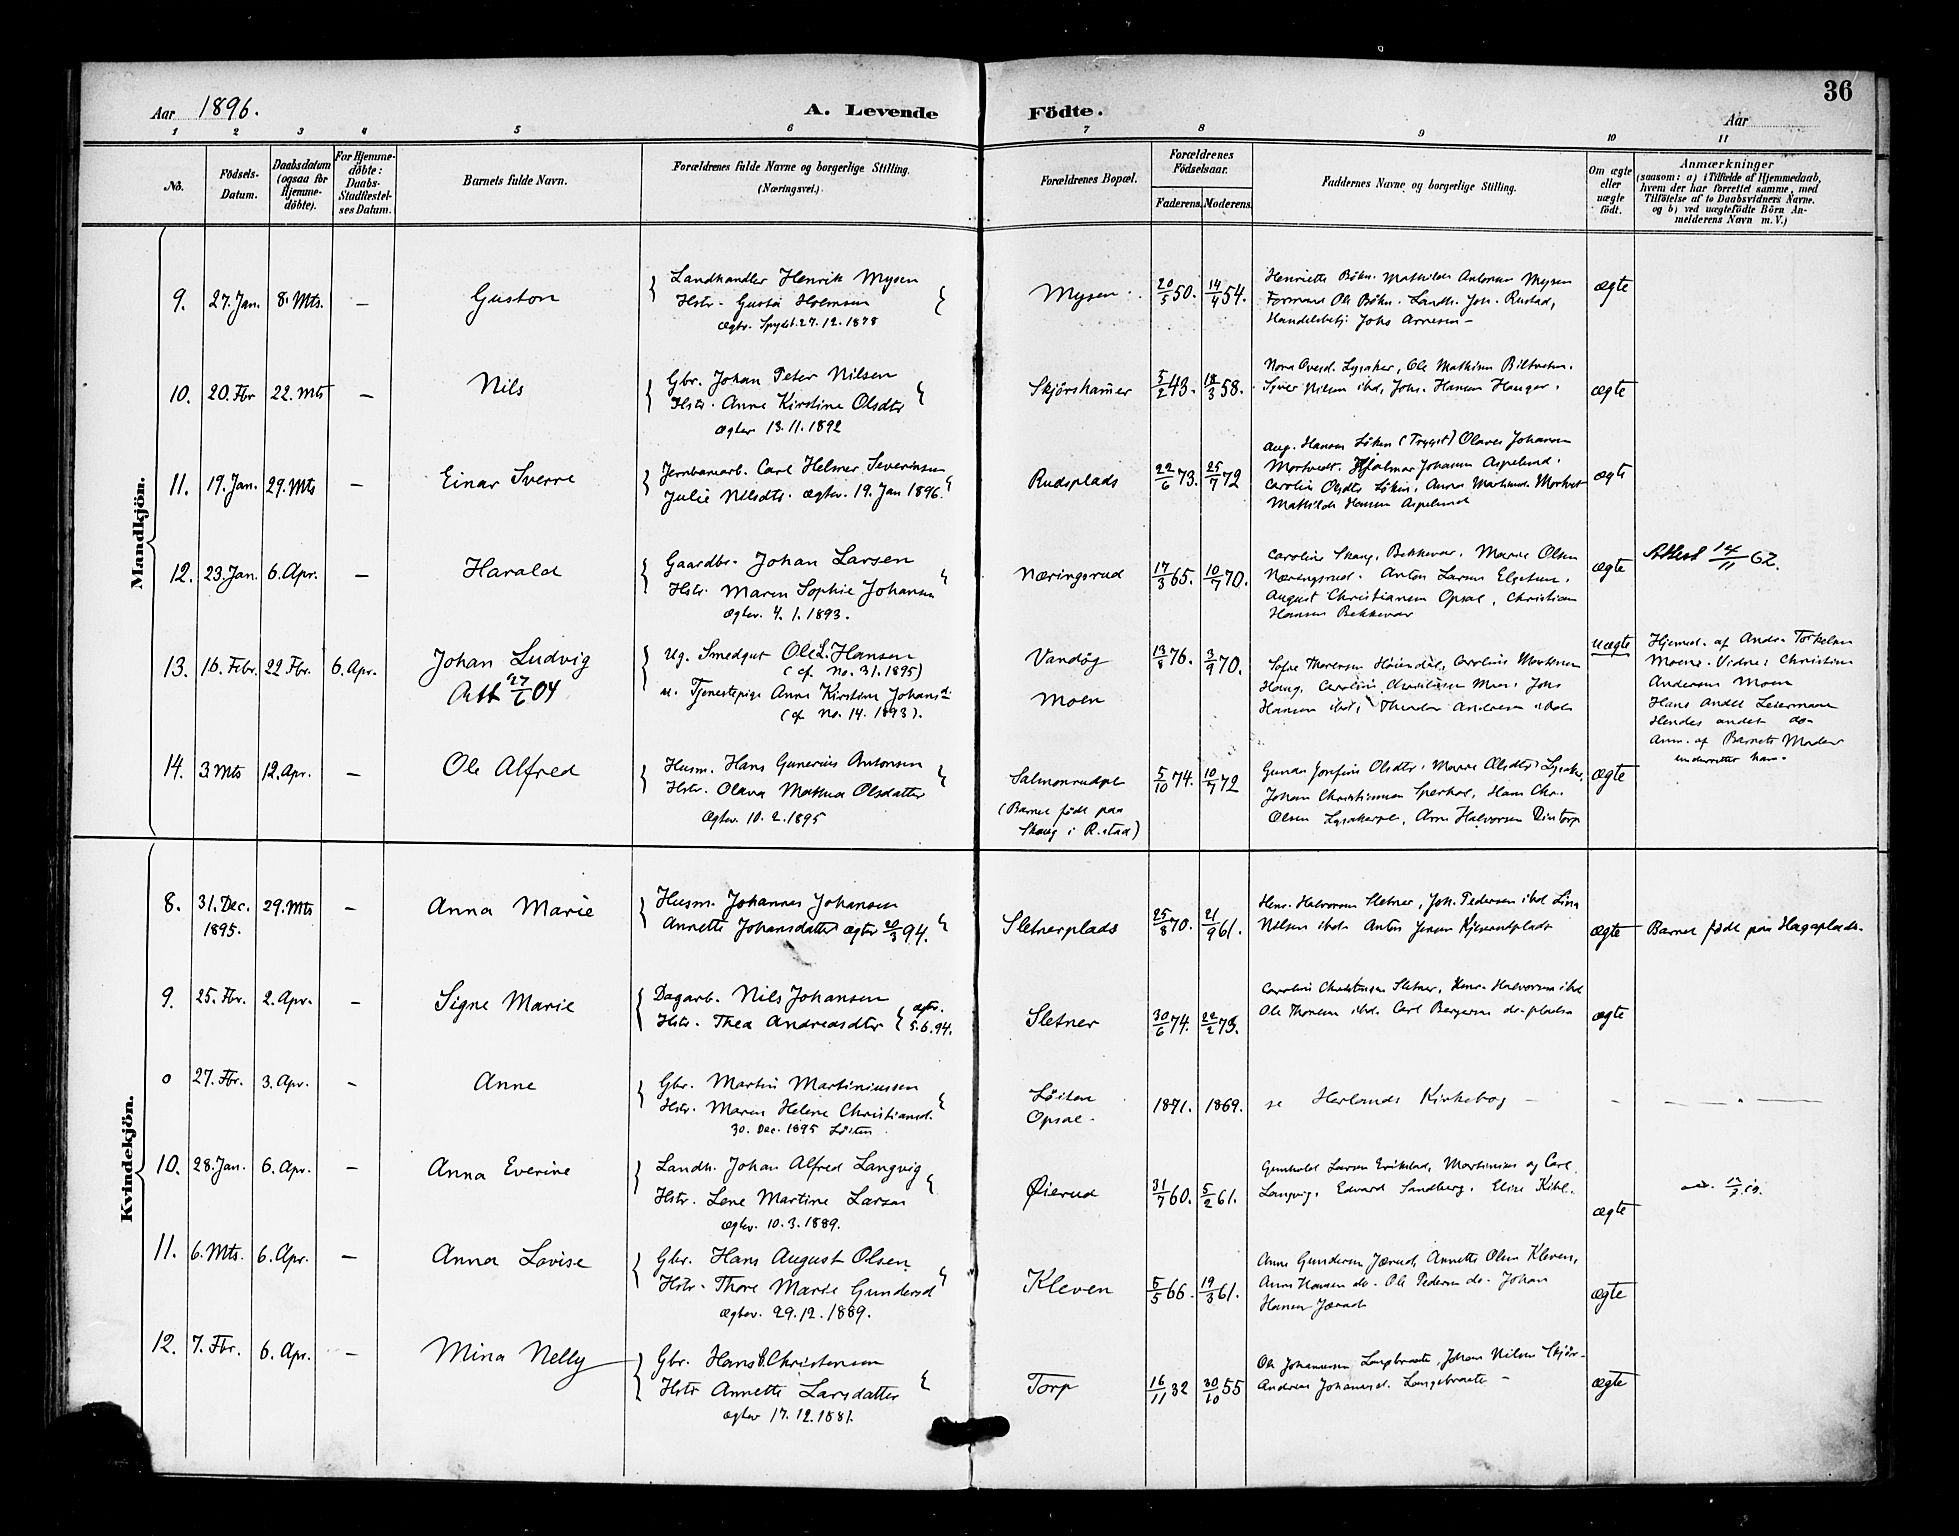 36
Aar 1896.
A. Levende
Födte.
Aar
1 2 3 4 5 6 7 8 9 10 11
No.
Födsels-Datum.
Daabsdatum (ogsaa for Hjemme-döbte).
For Hjemme-döbte: Daabs-Stadfæstel-ses Datum.
Barnets fulde Navn.
Forældrenes fulde Navne og borgerlige Stilling. (Næringsvei.)
Forældrenes Bopæl.
Forældrenes Födselsaar.
Faderens. Moderens.
Faddernes Navne og borgerlige Stilling.
Om ægte eller uægte födt.
Anmærkninger
(saasom: a) i Tilfælde af Hjemmedaab,
hvem der har forrettet samme, med
Tilföielse af to Daabsvidners Navne.
og b) ved uægtefödte Börn An-
melderens Navn m. V.)
Mandkjön.
9. 27. Jan. 8. Mts. — Guston
Landhandler Henrik Mysen
Hstr. Gusta Holmsen
Ægtv. Spydeb. 27.12.1878
Mysen. 20/5 50. 14/4 54.
Henriette Böhn. Mathilde Antonsen Mysen
Formand Ole Böhn. Landh. Joh. Rustad,
Handelsbetj. Johs Arnesen —
ægte
10. 20. Fbr 22. Mts — Nils
Gbr. Johan Peter Nilsen
Hstr. Anne Kirstine Olsdtr
Ægtev 13.11.1892
Skjørshamer 5/2 43. 18/3 58.
Lysaker, Ole Mathisen
Syver Nilsen ibd, Johs. Hansen Hauger.
ægte
11. 19. Jan. 29. Mts — Einar Sverre
Jernbanearb. Carl Helmer Severinsen
Julie Nilsdtr. Ægtev. 19. Jan 1896.
Rudsplads 22/6 73. 25/7 72
Aug. Hansen Løken (Trygst) Olaves Johansen
Mortvedt. Hjalmar Johansen Aspelund.
Caroline Olsdtr Løken, Anna Mortvet
Mathilde Hansen Aspelund
ægte
12. 23. Jan. 6. Apr. — Harald
Gaardbr. Johan Larsen
Hstr. Maren Sophie Johansen
Ægtev. 4.1.1893.
Næringsrud 17/3 65. 10/7 70.
Caroline Skaug, Bekkevar. Marie Olsen
Næringsrud. Anton Larsen
August Christiansen Opsal, Christian
Hansen Bekkevar
ægte
Attest 14/11 62.
13. 16. Febr. 22 Fbr. 6. Apr. Johan Ludvig
Att 27/6 04
Ug. Smedgut Ole L. Hansen
(cf. No. 31. 1895)
u. Tjenestepige Anne Kirstine Johansd.
(cf No. 14. 1893).
Vandøg 13/8 76. 3/9 70.
Moen
Sofie Caroline Mortensen
Haug, Caroline Christensen Moen Johs
Hansen ibd, Theodor Andersen ibd
uægte
Hjemmed. af Andr. Torkelsen
Moene. Vidner Christian
Andersen Moen
Hans andet Leiermaal
Hendes andet do.
Anm. af Barnets Moder
underretter ham.
14. 3. Mts 12. Apr. — Ole Alfred
Husm. Hans Gunerius Antonsen
Hstr. Olava Mathea Olsdatter
Ægtev. 10.2.1895
Salmonrudpl
(Barnet født paa
Skaug i R.stad)
5/10 74. 10/7 72
Gunda Josefine Olsdtr. Marie Olsdtr Lysaker,
Johan Christiansen Hans Chr.
Olsen Lysakerpl, Arne Halvorsen
ægte
Kvindekjön.
8. 31. Dec. 1895. 29. Mts — Anna Marie
Husm. Johannes Johansen
Annette Johansdatter Ægtev 20/3 94.
Sletnerplads 25/8 70. 21/9 61.
Henr. Halvorsen Sletner, Joh. Pedersen ibd Lina
Nilsen ibd. Anton Jensen
ægte Barnet født paa Hagaplads.
9. 25. Fbr. 2. Apr. — Signe Marie
Dagarb. Nils Johansen
Hstr. Thea Andreasdtr Ægtv. 5.6.94.
Sletner 30/6 74. 22/2 73.
Caroline Christensen Sletner, Henr. Halvorsen ibd
Ole Thoresen ibd. Carl Bergersen do. pladsen
ægte
0 27. Fbr. 3. Apr. — Anne
Gbr. Martin Martiniussen
Hstr. Maren Helene Christiansd.
30. Dec. 1895 Löiten
Löiten
Opsal. 1871. 1869. se Herlands Kirkebog
10. 28. Jan. 6. Apr. — Anna Everine
Landh. Johan Alfred Langvig
Hstr. Lene Martine Larsen
Ægtev. 10.3.1889.
Øierud 31/7 60. 5/2 61.
Larsen Martinius og Carl
Langvig, Edvard Sandberg, Elise
ægte
11. 6. Mts. 6. Apr. — Anna Lovise
Gbr. Hans August Olsen
Hstr. Thore Marie Gundersd
Ægtev. 29.12.1889.
Kleven 5/5 66. 19/3 61.
Anne Gundersen Jærud, Annette Olsen Kleven,
Anne Hansen do. Ole Pedersen do. Johan
Hansen Jærud
ægte
12. 7. Fbr. 6. Apr. — Mina Nelly
Gbr. Hans Christensen
Hstr Annette Larsdatter
Ægtev 17.12.1881.
Torp 16/11 32 30/10 55
Ole Johannessen Langbraate, Johan Nilsen
Andreas Johannesd. Langebraate —
ægte